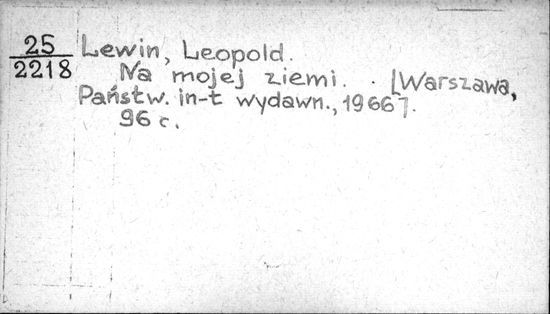 25
2218
Lewin, Leopold.
Na mojej ziemi. . [Warszawa,
Państw. in-t wydawn., 1966].
96 c.